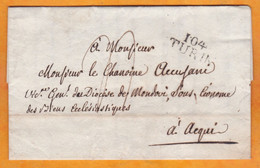 à Monsieur
104
TURIN
Monsieur le Chanoine Accusani
Vic.re Gen.l du Diocèse de Mondovi, Sous-Econome
des Biens Ecclésiastiques
à Acqui